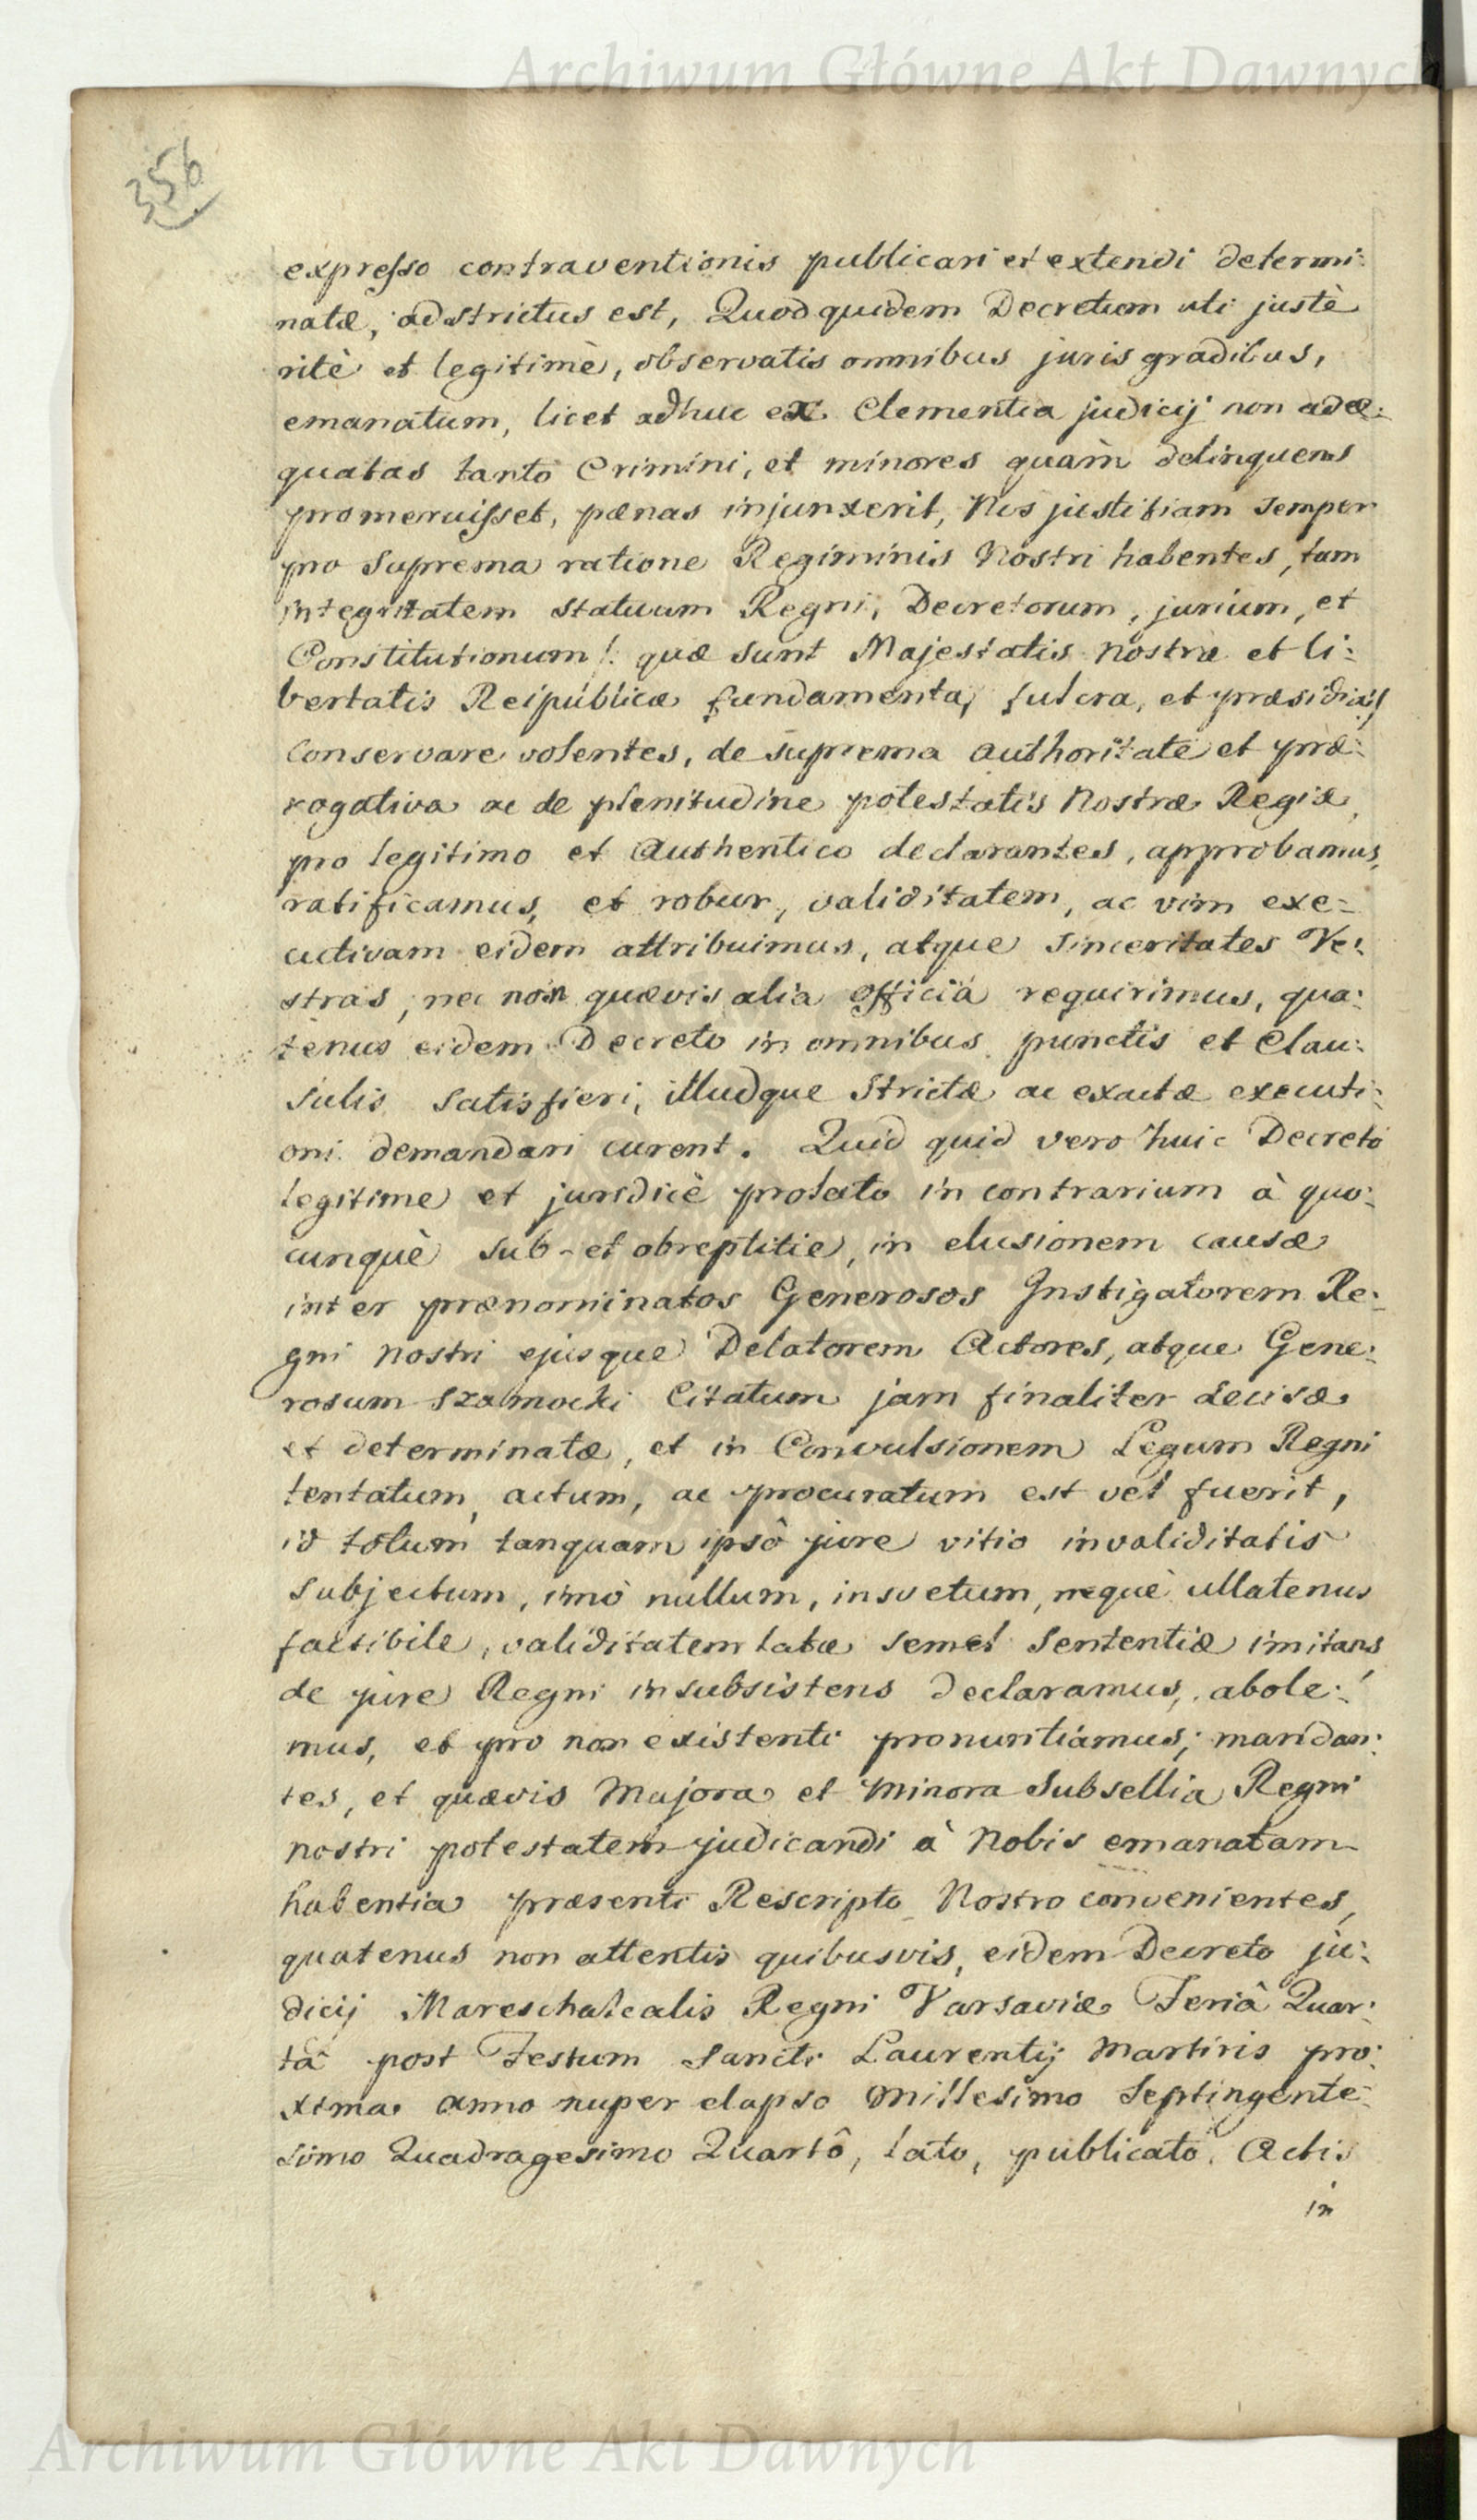 Archiwum Główne Akt Dawnych
356
expresso contraventionis publicari et extendi determi:
natæ, adstrictus est, Quod quidem Decretum uti justè
ritè et legitimè, observatis omnibus juris gradibus,
emanatum, licet adhuc ex Clementia judicij non adæ:
quatas tanto Crimini, et minores quàm delinquens
promeruisset, pænas injunxerit, Nos justitiam semper
pro Suprema ratione Regiminis Nostri habentes, tam
integritatem Statuum Regni, Decretorum, jurium, et
Constitutionum /: quæ sunt Majestatis nostræ et li:
bertatis Reipublicæ fundamenta, fulcra, et præsidia :/
Conservare volentes, de suprema authoritate et præ:
rogativa ac de plenitudine potestatis Nostræ Regiæ,
pro legitimo et Authentico declarantes, approbamus,
ratificamus, et robur, validitatem, ac vim exe=
cutivam eidem attribuimus, atque Sinceritates Ve:
stras, nec non quævis alia officia requirimus, qua:
tenus eidem Decreto in omnibus punctis et Clau:
sulis satisfieri, illudque Strictæ ac exactæ executi:
oni demandari curent. Quid quid vero huic Decreto
legitime et juridicè prolato in contrarium à quo:
cunquè sub- et obreptitie, in elusionem causæ
inter prænominatos Generosos Instigatorem Re:
gni nostri ejusque Delatorem Actores, atque Gene:
rosum Szamocki Citatum jam finaliter decisæ
et determinatæ, et in Convulsionem Legum Regni
tentatum, actum, ac procuratum est vel fuerit,
id totum tanquam ipsô jure vitio invaliditatis
Subjectum, imò nullum, insvetum, nequè ullatenus
factibile, validitatem latæ semel Sententiæ imitans
de jure Regni insubsistens declaramus, abole:
mus, et pro non existenti pronuntiamus; mandan:
tes, et quævis Majora et Minora Subsellia Regni
nostri potestatem judicandi à Nobis emanatam
habentia præsenti Rescripto Nostro convenientes,
quatenus non attentis quibusvis, eidem Decreto ju:
dicij Mareschalcalis Regni Varsaviæ Feriâ Quar:
tâ post Festum Sancti Laurentij Martiris pro:
xima anno nuper elapso Millesimo Septingente:
simo Quadragesimo Quartô, lato, publicato, Actis
in
Archiwum Główne Akt Dawnych